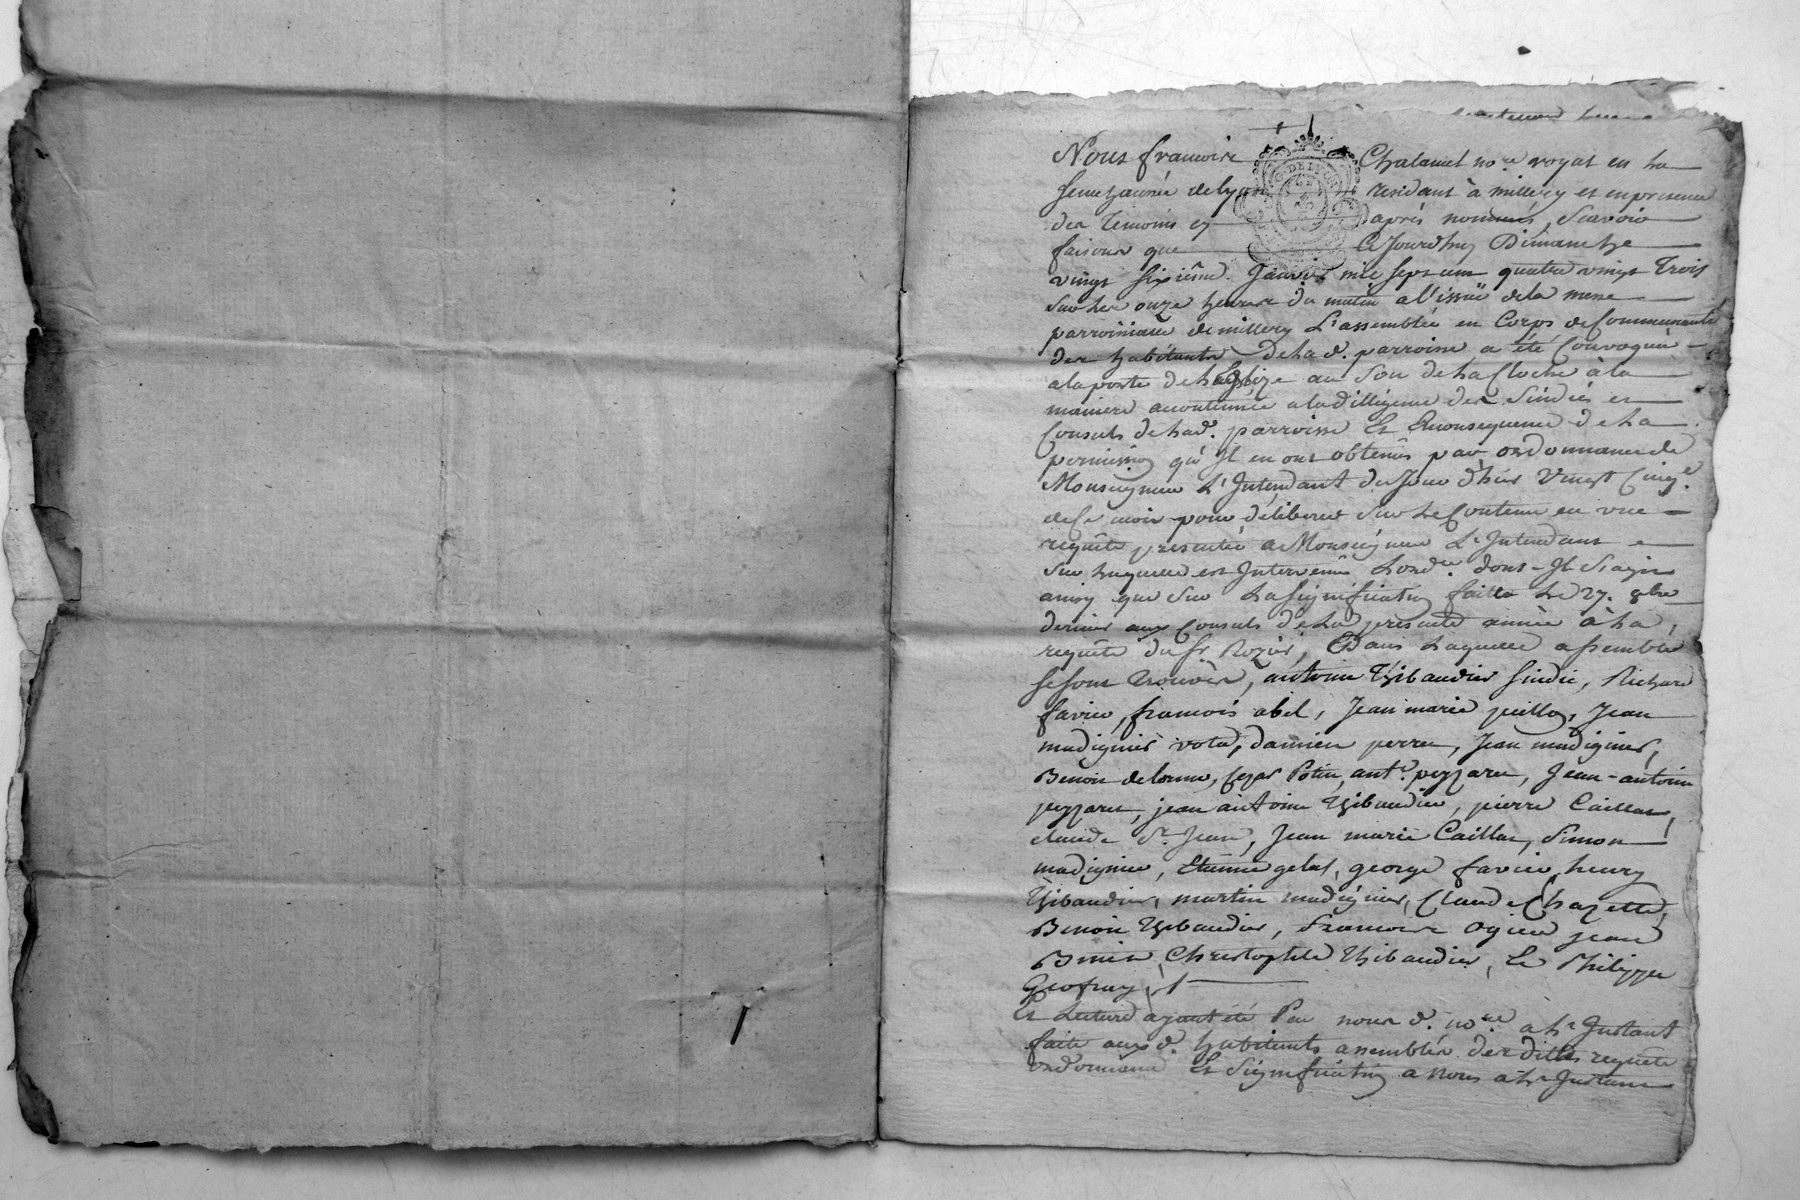 Nous francoise Chalamel no.re royal en la
Senechaussée de lyon residant à millery et en presence
des Temoins cy après nommés, Scavoir
faisons que Ce Jourdhuy Dimanche
vingt sixième Janvier mil sept cent quatre vingt Trois
Sur les onze heures du matin a l'issüe de la messe
parroissialle de millery L'assemblée en Corps de Communauté
des habitants de lad. parroisse a été Convoquée
a la porte de L'Eglize au Son de la Cloche à la
maniere accoutumée a la dilligence des Sindics et
Consuls de lad. parroisse Et En consequence de la
permission qu'Il en ont obtenüe par ordonnance de
Monseigneur L'Intendant du Jour d'hier Vingt Cinq.e
de Ce mois pour déliberer Sur le Contenu en une
requête presentée a Monseigneur L'Intendant
Sur laquelle est Intervenüe Lord.ce dont Il S'agit
ainsy que Sur La Signification faitte Le 27. 9bre
dernier aux Consuls de La presente année à La
requête du Sr Rozier, Dans Laquelle assemblée
Se Sont trouvés, antoine Thibaudier Sindic, Richard
favier, francois abel, Jean marie Jean
madignier damien perret, Jean madignier,
Benoit delorme, Cezar Potin, ant.e pezzaret, Jean-antoine
pezzaret, jean antoine Thibaudier, pierre Caillat,
claude St. Jean, Jean marie Caillat, Simon
madignier, Etienne gelas, george favier, henry
Thibaudier, martin madignier, Claude Chazette,
Benoit Thibaudier, Francois Ogier jean
Christophle Thibaudier, Et Philippe
Geofray
Et Lecture ayant été Par nous d. no.re a L'Instant
faite aux d. habitants assemblés des dittes requête
ordonnance Et Signification a nous a L'Instant